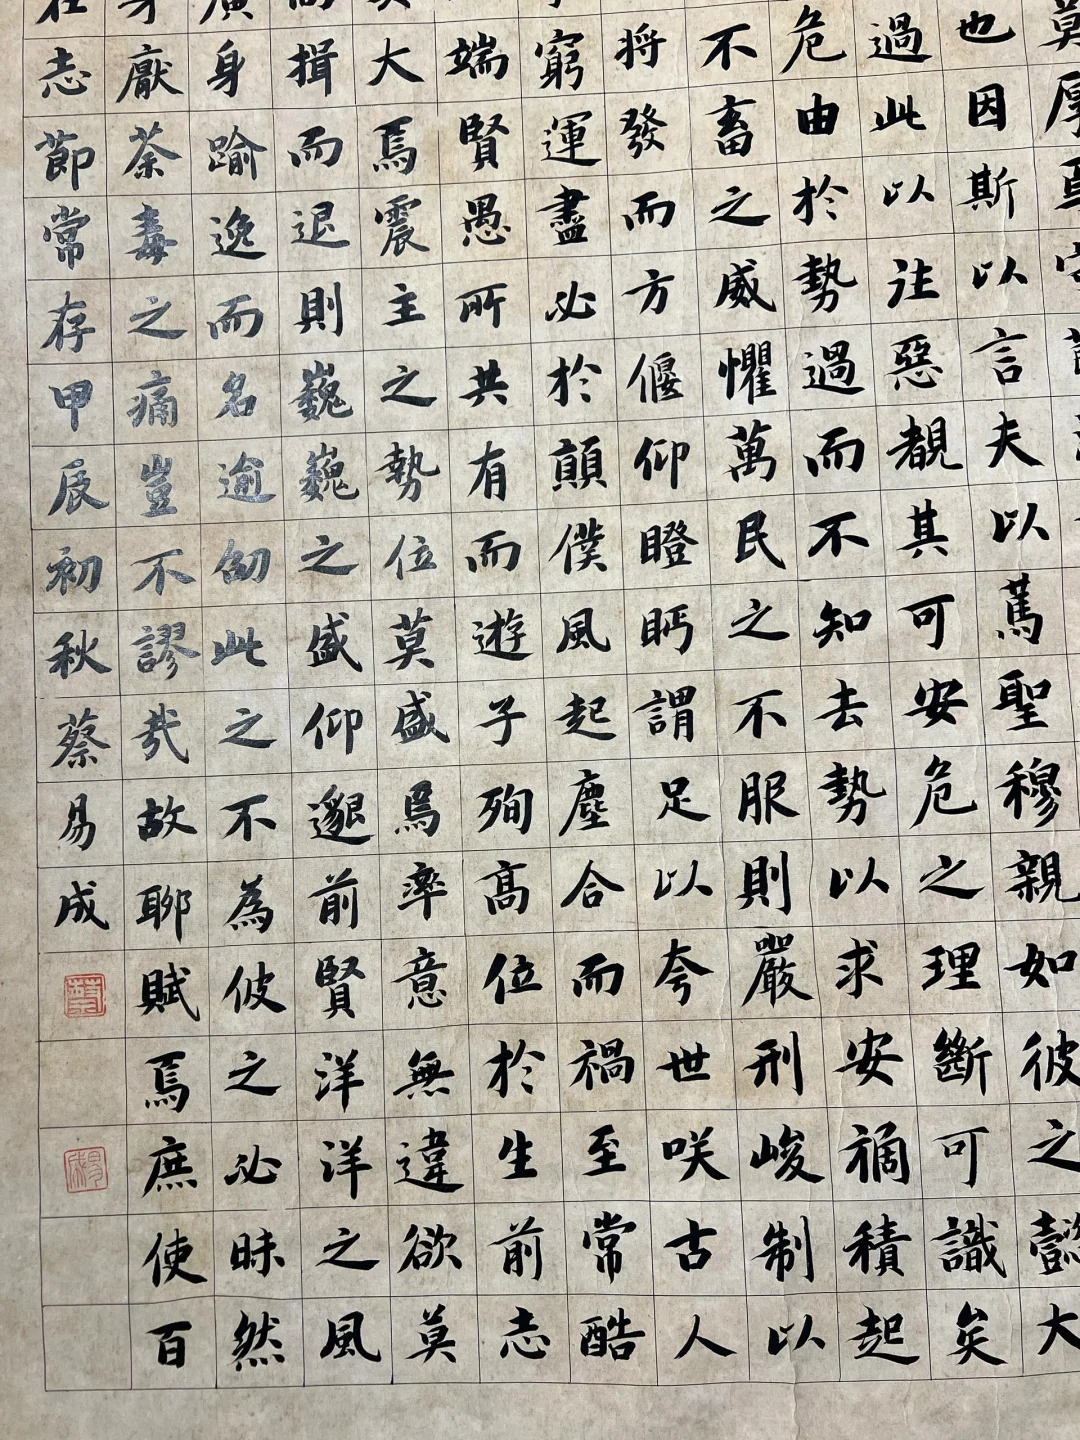 莫厚焉
之懿大
也因斯以言夫以篤聖穆親如彼之懿大
過此以往惡覩其可安危之理斷可識矣
危由於勢過而不知去勢以求安禍積起
不畜之威懼萬民之不服則嚴刑峻制以
将發而方偃仰瞪眄謂足以夸世咲古人
窮運盡必於顛僕風起塵合而禍至常酷
端賢愚所共有而遊子殉高位於生前志
大焉震主之勢位莫盛焉率意無違欲莫
揖而退則巍巍之盛仰邈前賢洋洋之風
身踰逸而名逾劭此之不為彼之必昧然
厭荼毒之痛豈不謬哉故聊賦焉庶使百
志節常存甲辰初秋蔡易成